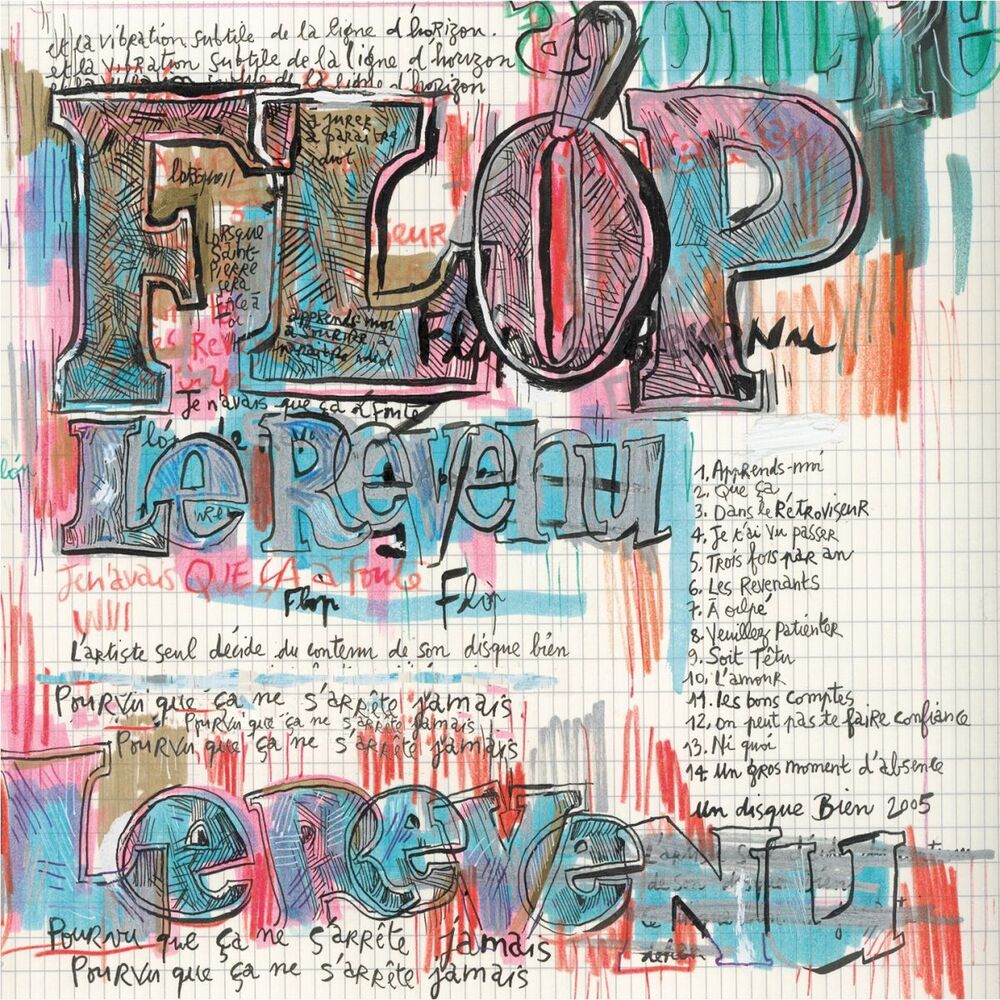 et la vibration subtile de la ligne d'horizon.
et la vibration subtile de la ligne d'horizon
et la vibration subtile de la ligne d'horizon
FLÓP
à jurer
à paraître
droit
lorsqu'il
Lorsque
Saint-
Pierre
sera
face à
toi
apprends-moi
à mentir à
paraître droit
Flop
Je n'avais que ça à foutre
Le Revenu
Je n'avais QUE ÇA à foutre
Flop
Flóp
L'artiste seul décide du contenu de son disque bien
Pourvu que ça ne s'arrête jamais
Pourvu que ça ne s'arrête jamais
Pourvu que ça ne s'arrête jamais
1. Apprends-moi
2. Que ça
3. Dans le Rétroviseur
4. Je t'ai vu passer
5. Trois fois par an
6. Les Revenants
7. À oilpé
8. Veuillez patienter
9. Soit Têtu
10. L'amour
11. Les bons comptes
12. on peut pas te faire confiance
13. Ni quoi
14. Un gros moment d'absence
un disque Bien 2005
Le Revenu
Pourvu que ça ne s'arrête jamais
Pourvu que ça ne s'arrête jamais